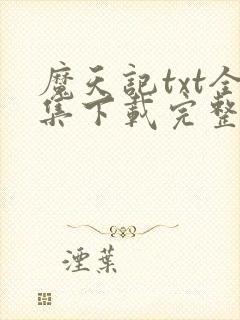 魔天記txt全
集下載完整
湮葉